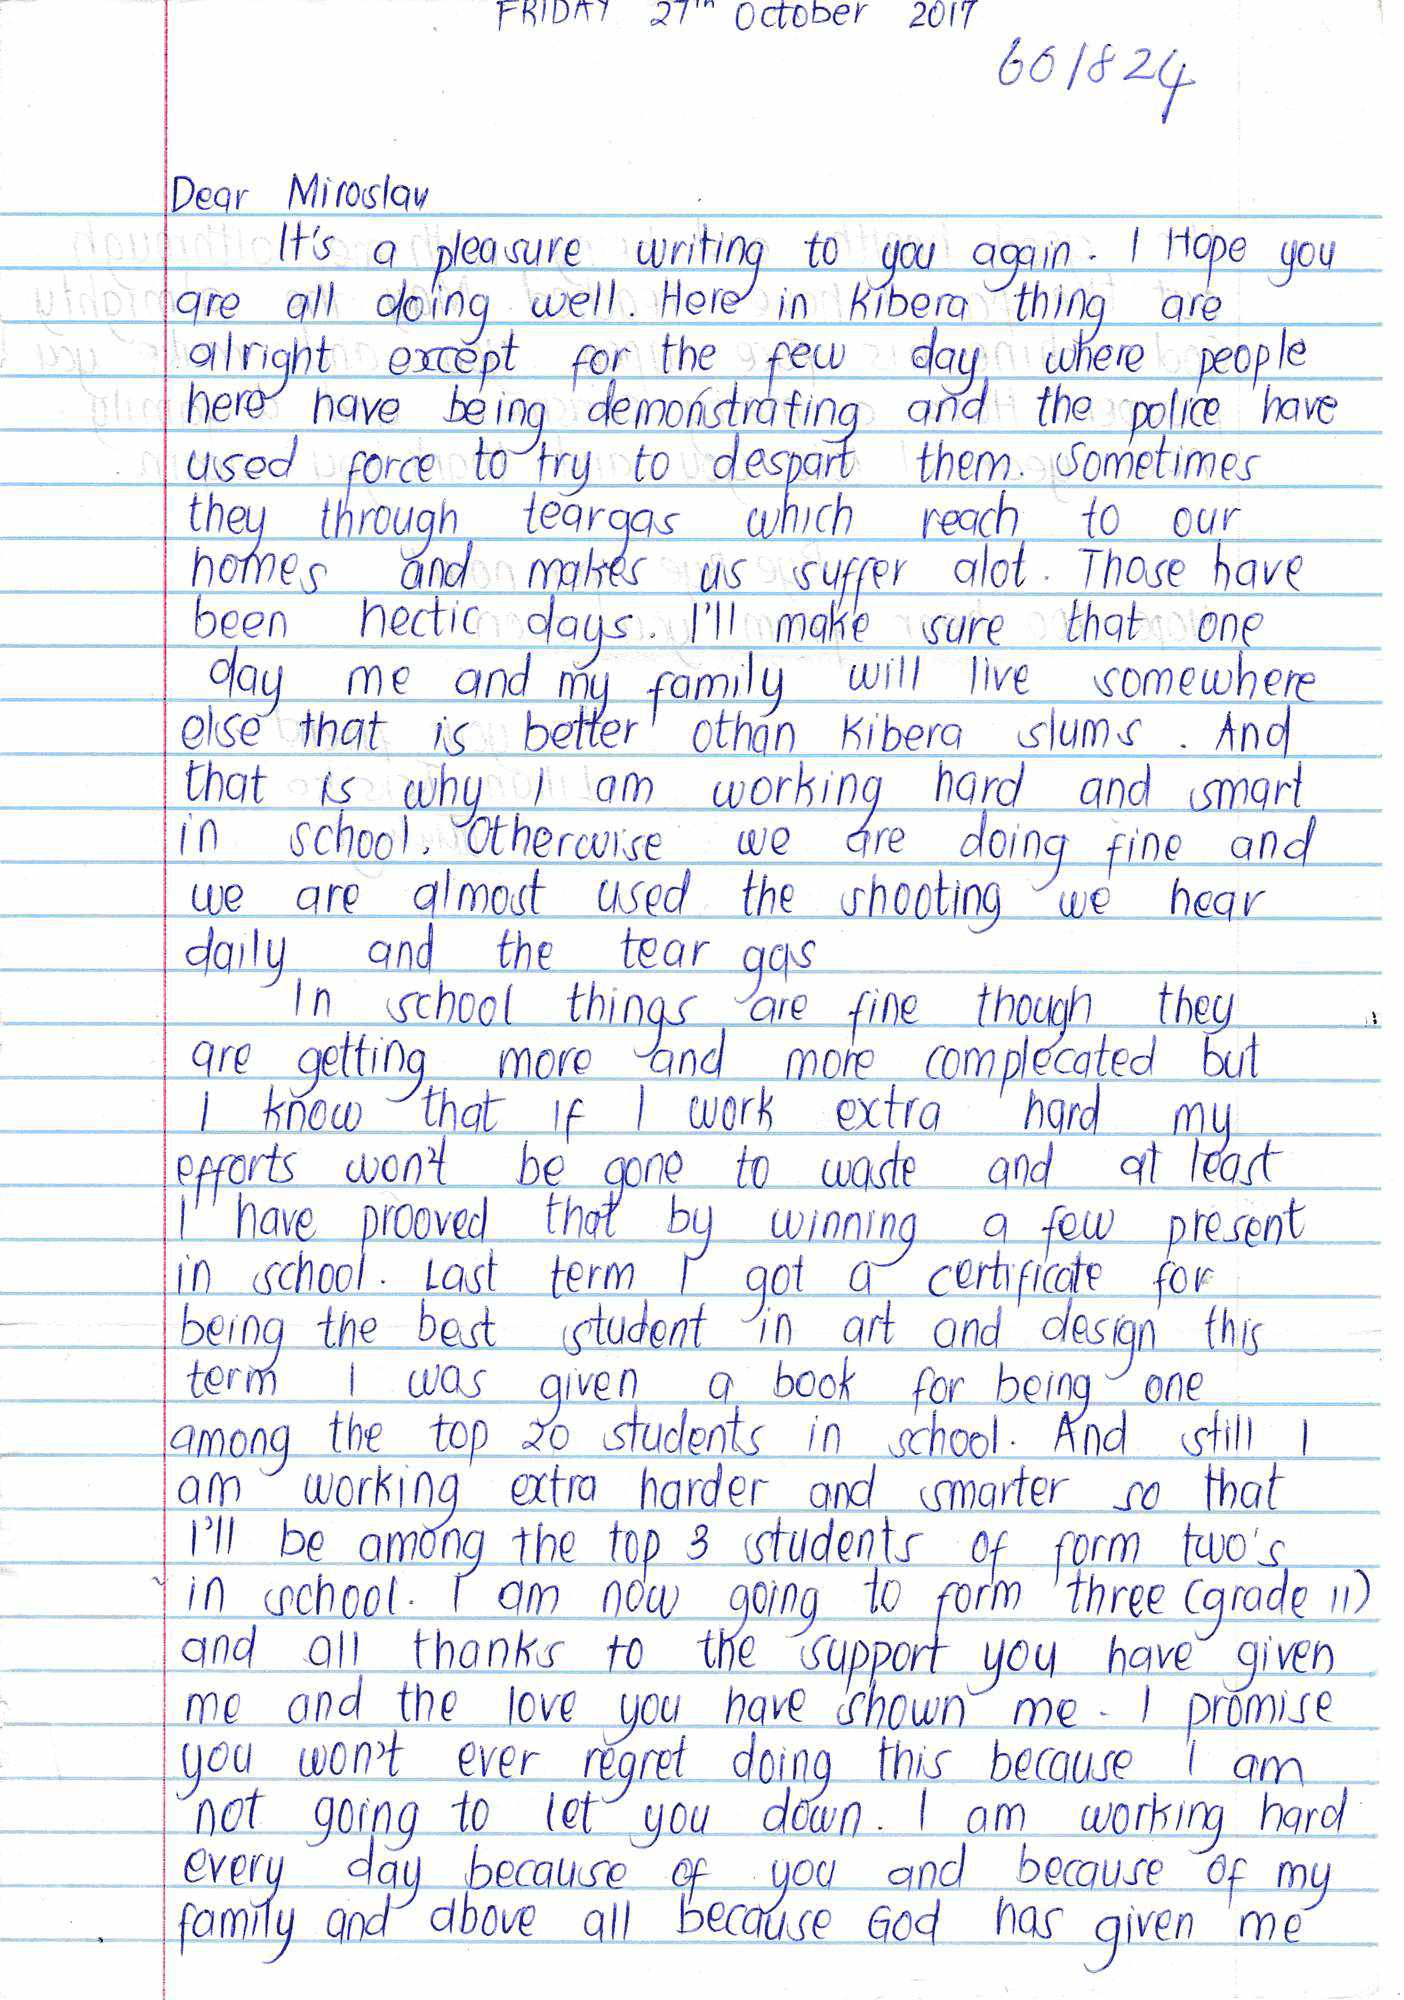 FRIDAY 27th October 2017
601824
Dear Miroslav
It's a pleasure writing to you again. I Hope you
are all doing well. Here in Kibera thing are
alright except for the few day where people
here have being demonstrating and the police have
used force to try to despart them. Sometimes
they through teargas which reach to our
homes and makes us suffer alot. Those have
been hectic days. I'll make sure that one
day me and my family will live somewhere
else that is better othan Kibera slums. And
that is why I am working hard and smart
in school. Otherwise we are doing fine and
we are almost used the shooting we hear
daily and the tear gas
In school things are fine though they
are getting more and more complecated but
I know that if I work extra hard my
efforts won't be gone to waste and at least
I have prooved that by winning a few present
in school. Last term I got a certificate for
being the best student in art and design this
term I was given a book for being one
among the top 20 students in school. And still I
am working extra harder and smarter so that
I'll be among the top 3 students of form two's
in school. I am now going to form three (grade 11)
and all thanks to the support you have given
me and the love you have shown me. I promise
you won't ever regret doing this because I am
not going to let you down. I am working hard
every day because of you and because of my
family and above all because God has given me